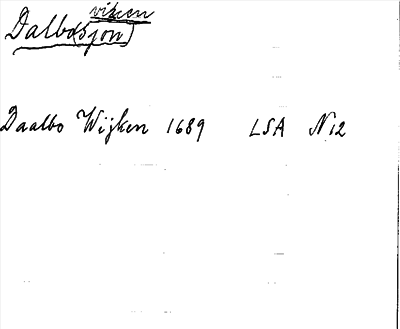 viken
Dalbo(sjön)
Daalbo Wijken 1689 LSA N12